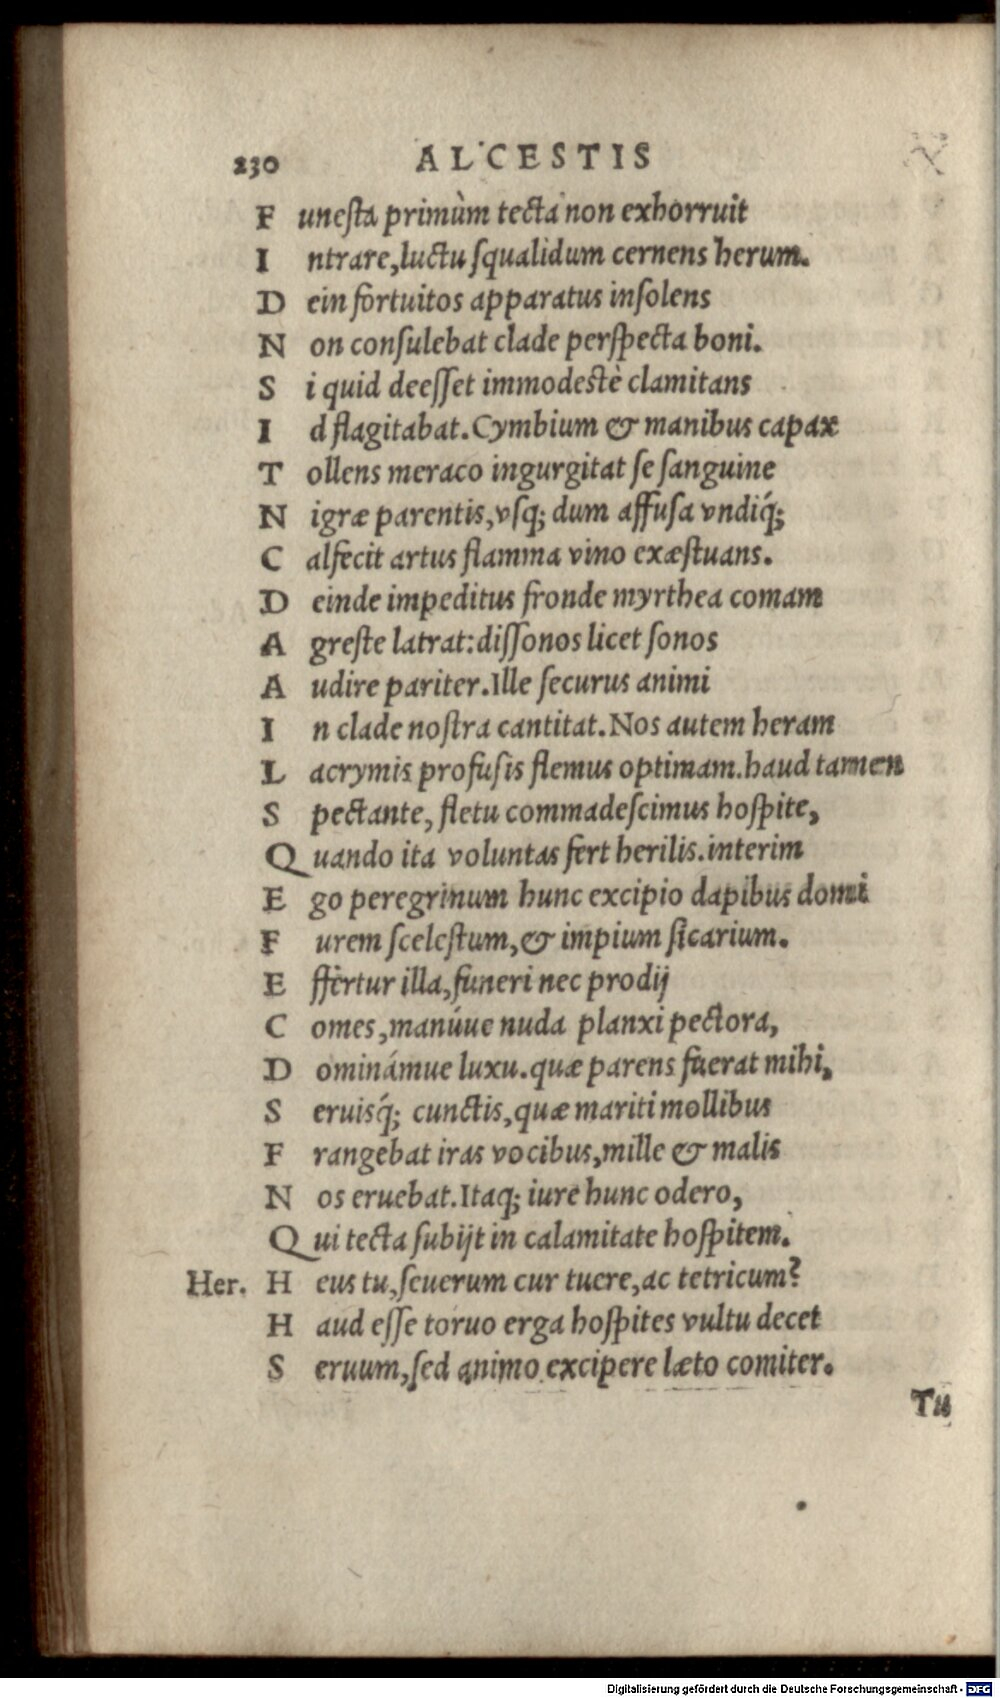 230 ALCESTIS
Funesta primùm tecta non exhorruit
Intrare, luctu squalidum cernens herum.
Dein fortuitos apparatus insolens
Non consulebat clade perspecta boni.
Si quid deesset immodestè clamitans
Id flagitabat. Cymbium & manibus capax
Tollens meraco ingurgitat se sanguine
Nigræ parentis, vsq; dum affusa vndiq́;
Calfecit artus flamma vino exæstuans.
Deinde impeditus fronde myrthea comam
Agreste latrat: dissonos licet sonos
Audire pariter. Ille securus animi
In clade nostra cantitat. Nos autem heram
Lacrymis profusis flemus optimam. haud tamen
Spectante, fletu commadescimus hospite,
Quando ita voluntas fert herilis. interim
Ego peregrinum hunc excipio dapibus domi
Furem scelestum, & impium sicarium.
Effertur illa, funeri nec prodij
Comes, manúue nuda planxi pectora,
Dominámue luxu. quæ parens fuerat mihi,
Seruisq́; cunctis, quæ mariti mollibus
Frangebat iras vocibus, mille & malis
Nos eruebat. Itaq; iure hunc odero,
Qui tecta subijt in calamitate hospitem.
Her. Heus tu, seuerum cur tuere, ac tetricum?
Haud esse toruo erga hospites vultu decet
Seruum, sed animo excipere læto comiter.
Tu
Digitalisierung gefördert durch die Deutsche Forschungsgemeinschaft - DFG